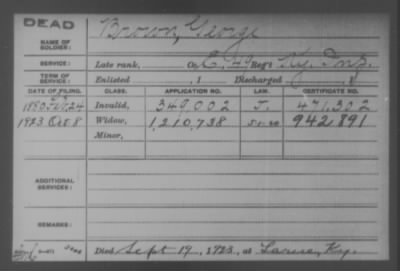 DEAD
NAME OF SOLDIER: Brown, George
SERVICE: Late rank, Co. C, 49 Reg't Ky. Inf.
TERM OF SERVICE: Enlisted , 1 Discharged , 1
DATE OF FILING. CLASS. APPLICATION NO. LAW. CERTIFICATE NO.
1880 24 Invalid, 349,002 J. 471,302
1923 Oct 8 Widow, 1,210,738 942 891
Minor,
ADDITIONAL SERVICES:
REMARKS:
Died Sept 19, 1923, at Ky.